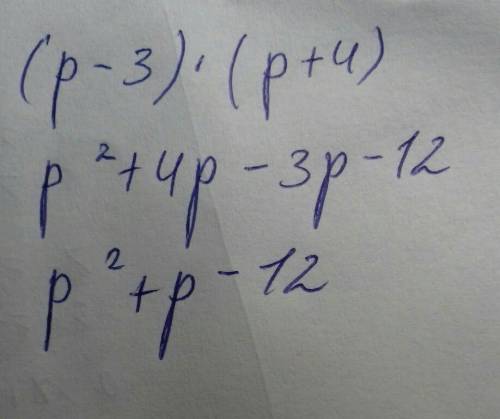 (p-3)·(p+4)
p²+4p-3p-12
p²+p-12